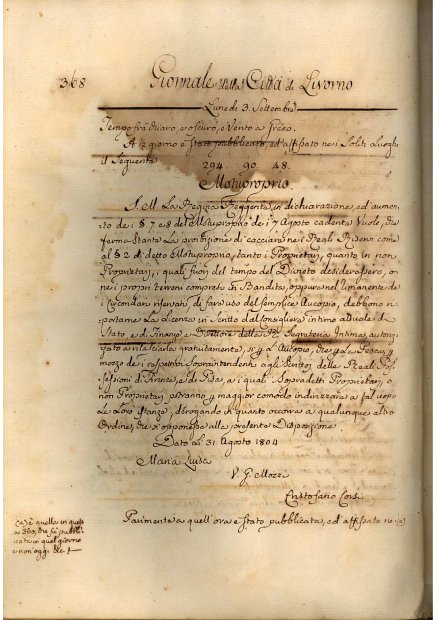 368 Giornale della Città di Livorno
Lunedì 3. Settembre
Tempo frà chiaro, e oscuro, e Vento a Greco.
A ½ giorno è stato pubblicato, ed affissato nei Soliti Luoghi
il Seguente
294. 90. 48.
Motuproprio
S. M. La Regina Reggente, in dichiarazione, ed aumen,
to dei § 7. e 8 del Motuproprio de i 7 Agosto cadente Vuole, che
ferma Stante La proibizione di cacciare nei Reali Riservi come
al § 2 di detto Motuproprio, tanto i Proprietarj, quanto in non
Proprietarj, i quali fuori del tempo del Divieto desiderassero, o
nei proprj terreni compresi in Bandita, oppure nel rimanente de
i Circondarj riservati, di fare uso del semplice Aucupio, debbono ri
portarne La Licenza in Scritto dal Consigliere intimo Attuale di
Stato e di Finanze e Direttore della R. Segreteria Intima, autoriz
zato a rilasciarla gratuitamente, e La Pesca, per
mezzo dei respettivi Soprintendenti agli Scrittoj delle Reali Pos,
sessioni di Firenze, e di Pisa, a i quali Sopradetti Proprietarj, o
non Proprietarj potranno per maggior comodo indirizzare a tal uopo
Le Loro istanze, derogando in quanto occorra a qualunque altro
Ordine, che si opponesse alla presente Disposizione.
Dato Li 31. Agosto 1804
Maria Luisa
V. G. Mozzi
Cristofano Corsi
Parimente a quell'ora è stato pubblicata, ed affissata ne (a)
(a) è quella in questo
a 369, che fu pubbli
cata in quel giorno
e non oggi che